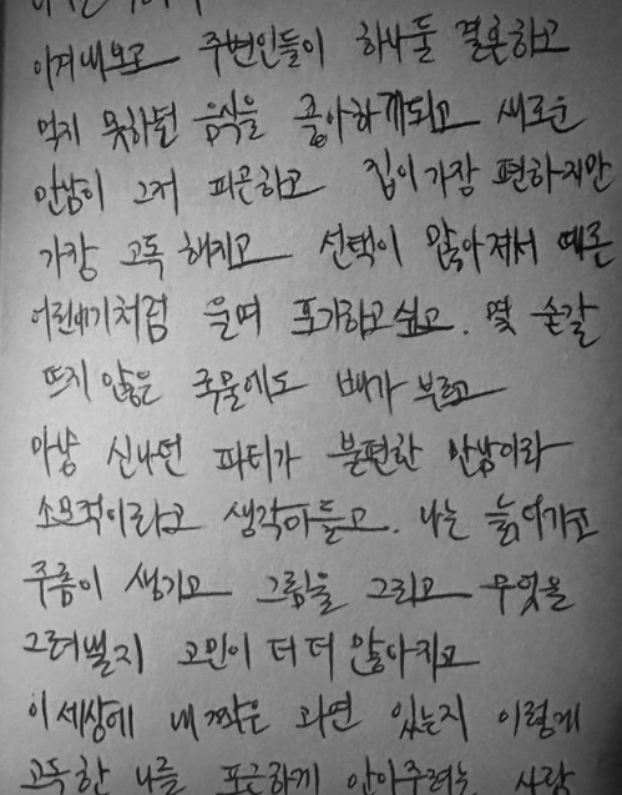 주변인들이 하나둘 결혼하고
먹지 못하던 음식을 좋아하게되고 새로운
만남이 그저 피곤하고 집이 가장 편하지만
가장 고독 해지고 선택이 많아져서 때론
어린애기처럼 울며 포기하고 싶고. 몇 숟갈
뜨지 않은 국물에도 배가 부르고
마냥 신나던 파티가 불편한 만남이라
소모적이라고 생각이들고. 나는 늙어가고
주름이 생기고 그림을 그리고 무엇을
그려낼지 고민이 더 더 많아지고
이 세상에 내 짝은 과연 있는지 이렇게
고독한 나를 포근하게 안아주려는 사람